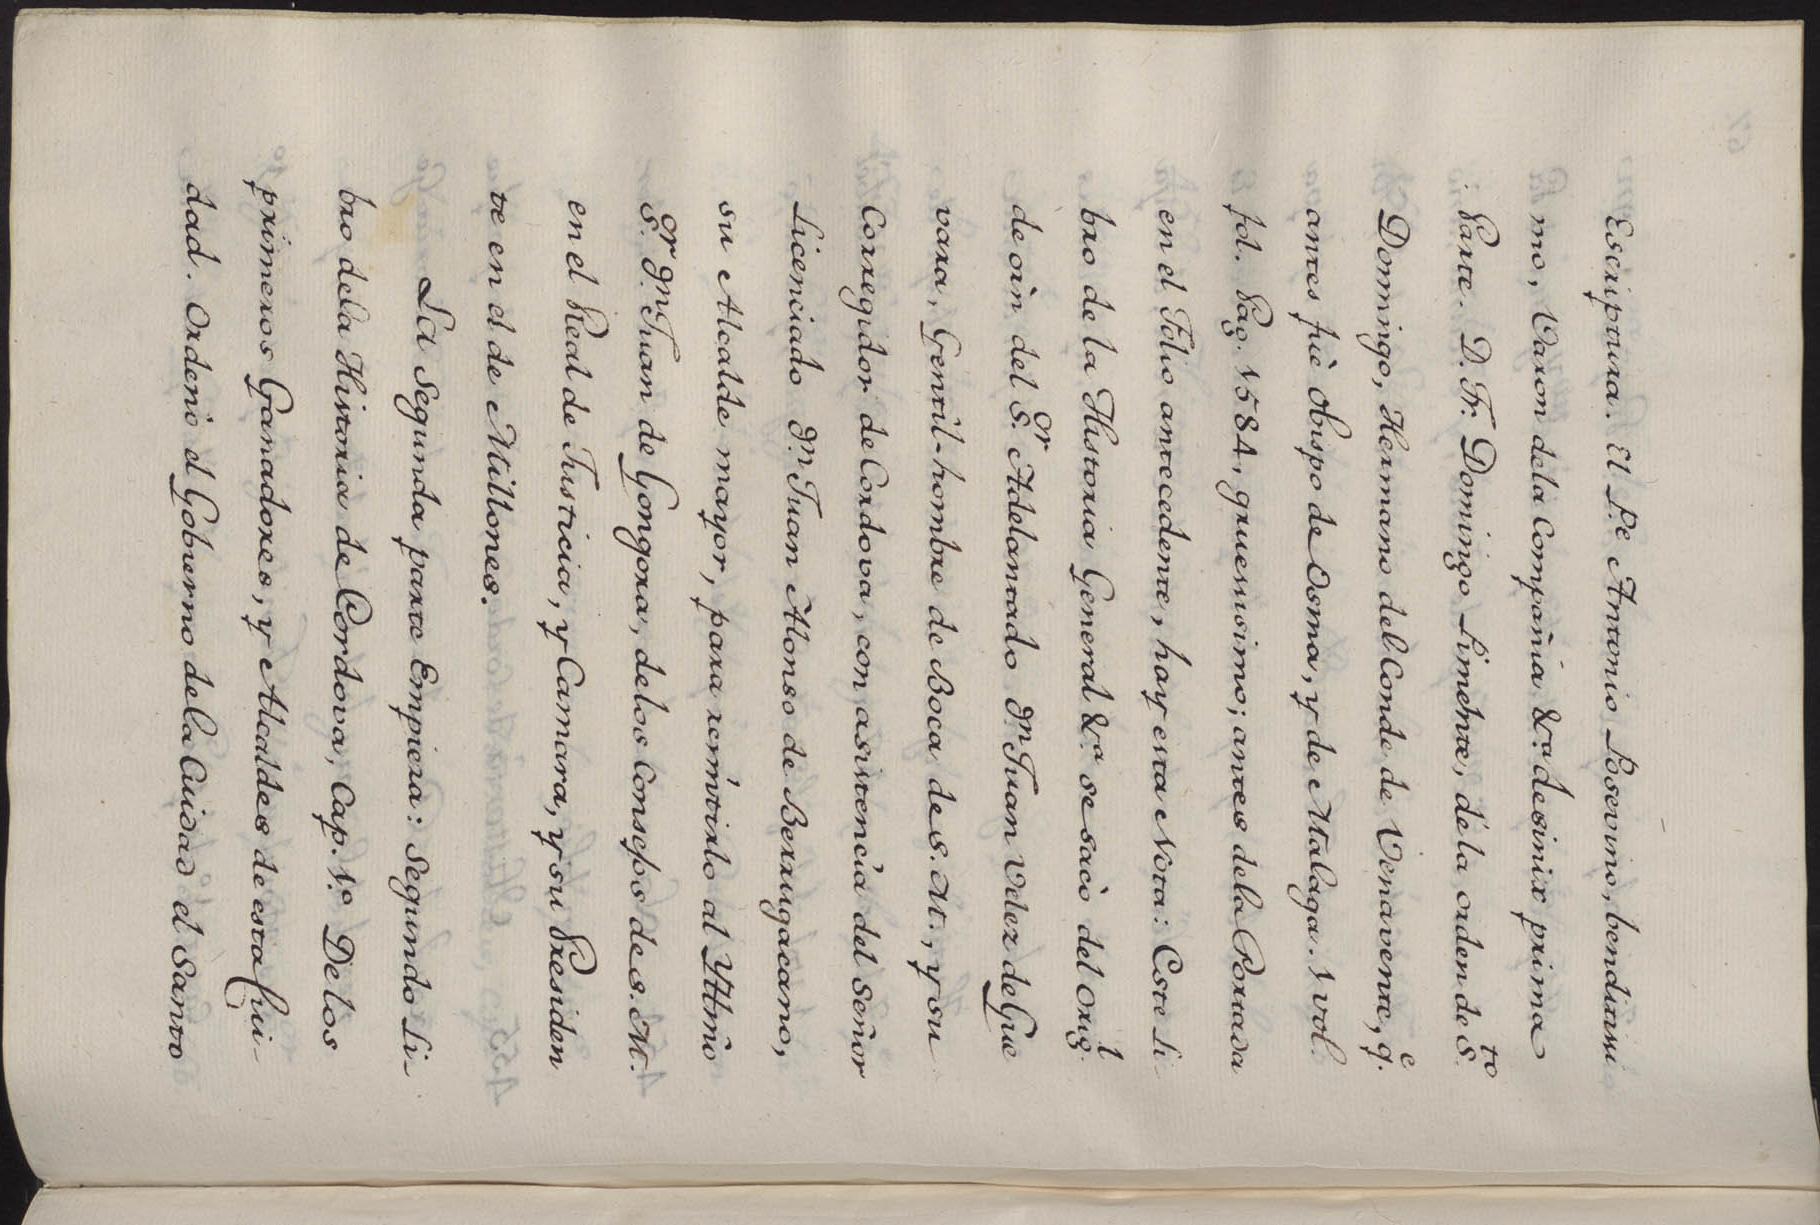 Escriptura. El P.e Antonio Posevino, benditisi
mo, Varon dela Compañia &.a desinix prima
Parte. D. Fr. Domingo Pimentel, dela orden de S.to
Domingo, Hermano del Conde de Venavente, q.e
antes fuè Obispo de Osma, y de Malaga. 1 vol.
fol. Pag. 1584, gruesissimo; antes dela Portada
en el Folio antecedente, hay esta Nota: Este Li-
bro de la Historia General &.a se sacò del orig.l
de oìn del S.or Adelantado D.n Juan Velez de Gue
vara, Gentil-hombre de Boca de S. M., y su
Corregidor de Cordova, con asistencia del Señor
Licenciado D.n Juan Alonso de Berrugacano,
su Alcalde mayor, para remitirlo al Yttmo
S.or D.n Juan de Gongora, delos Consejos de S. M.
en el Real de Justicia, y Camara, y su Presiden
te en el de Millones.
La Segunda parte Empieza: Segundo Li-
bro dela Historia de Cordova, Cap. 1.o De los
primeros Ganadores, y Alcaldes de esta Ciu-
dad. Ordenò el Gobierno dela Ciudad el Santo